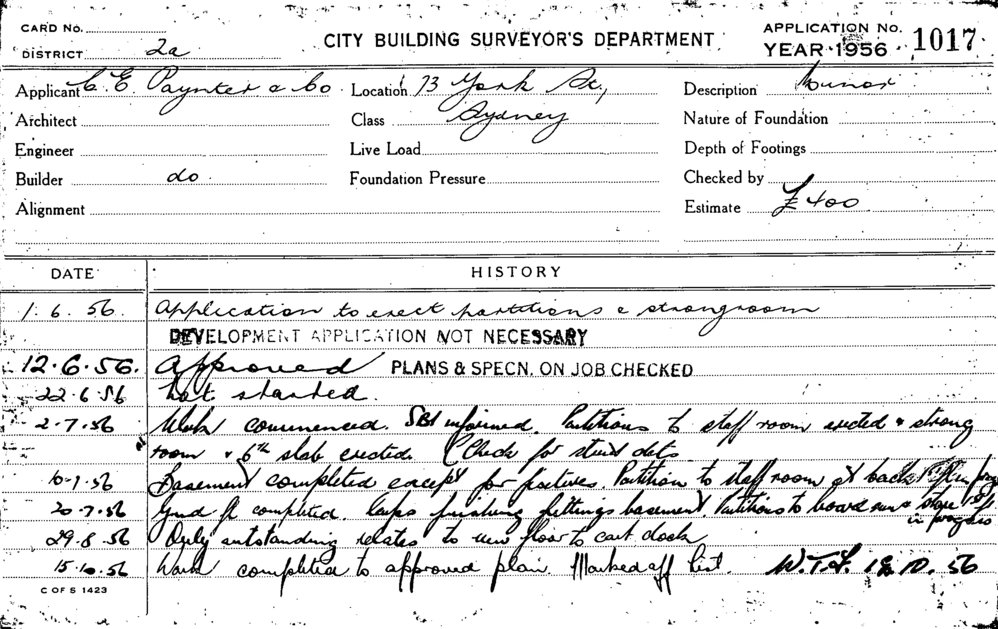 CARD No.
DISTRICT 2a
CITY BUILDING SURVEYOR'S DEPARTMENT
APPLICATION No. 1017
YEAR 1956
Applicant C. E. Paynter & Co
Location 73 York St.,
Description Minor
Architect
Class Sydney
Nature of Foundation
Engineer
Live Load
Depth of Footings
Builder do
Foundation Pressure
Checked by
Alignment
Estimate £400
DATE HISTORY
1.6.56. Application to erect partitions & strongroom
DEVELOPMENT APPLICATION NOT NECESSARY
12.6.56. Approved PLANS & SPECN. ON JOB CHECKED
22.6.56 Not started.
2-7-56 Work commenced. SBI informed. Partitions to staff room erected & strong
room & 6th slab erected. Check for
10-7-56 Basement completed except for Partition to staff room at back
20.7.56 Gnd fl completed. finishing fittings basement. Partitions to board room & 1st fl
in progress
29.8.56 Only outstanding relates to new floor to cart dock
15.10.56 Work completed to approved plan. Marked off list. W.T.F. 18.10.56
C OF S 1423